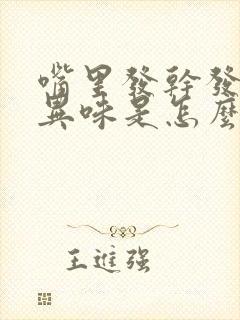 嘴里發幹發
異味是怎麽
王進强